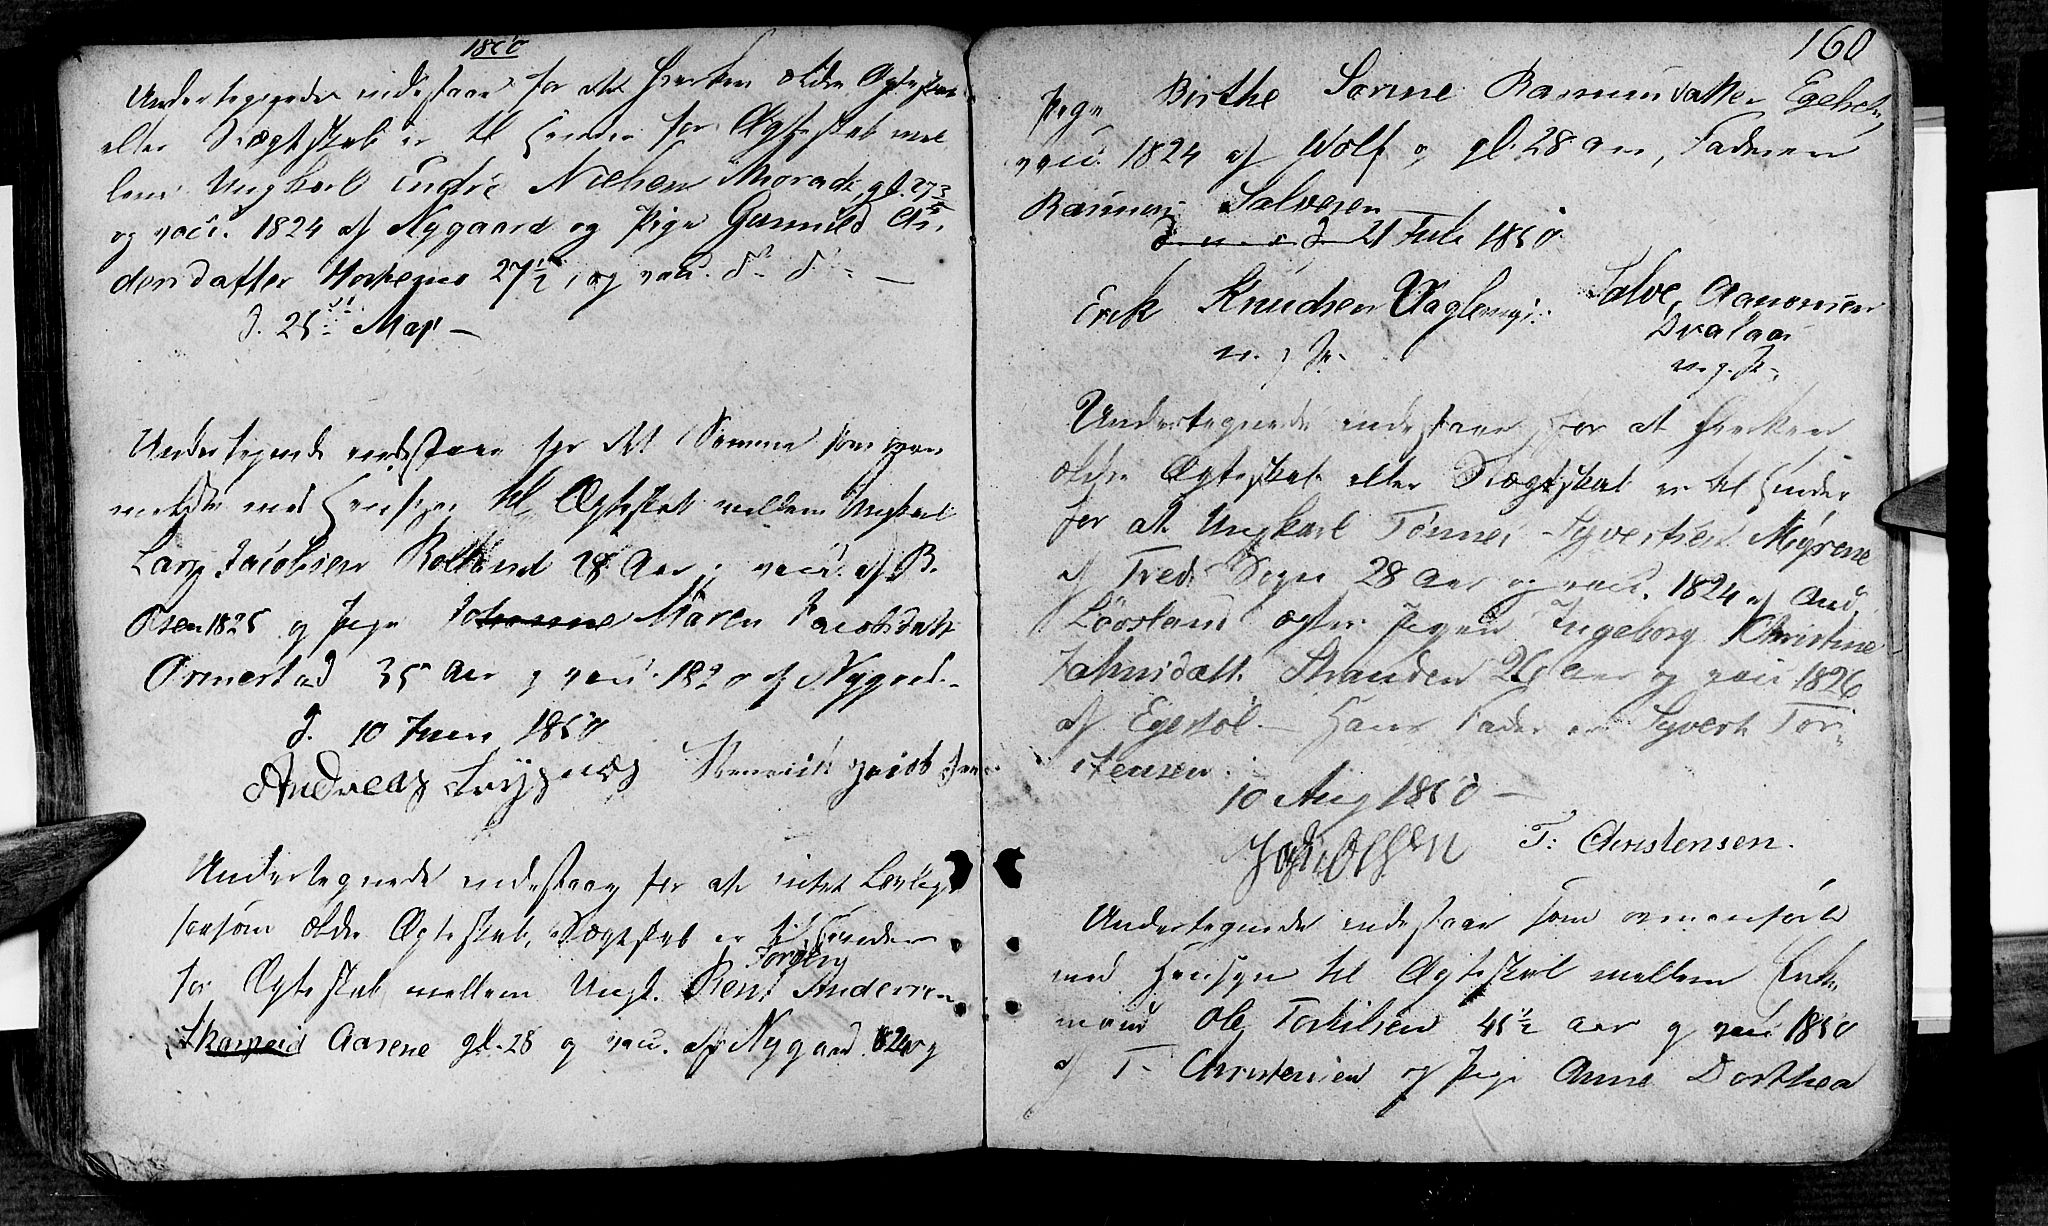 1850
Undertegnede indestaar for at hverken ældre Ægteskab
eller Slægtskab er til Hinder for Ægteskab mel
lem Ungkarl Endre Nielsen Morade, gl. 27
og vacc. 1824 af Nygaard og Pige Gunnild An
dersdatter 27½, og vacc. d° d° —
d. 25 Mai —
Undertegnede indestaar for det Samme som oven
meldte med Hensyn til Ægteskab mellem Ungkarl
Lars Jacobsen Rolland 28 Aar, vacc. af B.
Olsen 1825 og Pige Johanne Maren Jacobsdatt
Ormestad 35 Aar og vacc. 1820 af Nygaard.
d. 10 Juni 1850
Andreas Jacob
Undertegnede indestaar for at intet Lovligt
saasom ældre Ægteskab, Slægtskab er til Hinder
for Ægteskab mellem Ungk. Bent Torgberg Andersen
Aasene gl. 28 og vacc. af Nygaard 1824 og
160
Pige Birthe Sorine Rasmusdatter
vacc. 1824 af Wolf og gl. 28 Aar, Faderen
Rasmus Salvesen
d. 21 Juli 1850
Erik Knudsen Salve Aanonsen
Dvalaas
m. f. P. m. f. P.
Undertegnede indestaar for at hverken
ældre Ægteskab eller Slægtskab er til Hinder
for at Ungkarl Tønnes Syvertsen Myrene
af Sogn 28 Aar og vacc. 1824 af And.
Løvsland ægter Pigen Ingeborg Christine
Jahnsdatt. Stranden 26 Aar og vacc 1826
af Egestol. — Hans Fader er Syvert Tor
stensen.
10 Aug 1850 —
John Olsen T: Christensen.
Undertegnede indestaar som ovenanførte
med Hensyn til Ægteskab mellem Enke
mand Ole Torkilsen 45½ Aar og vacc 1850
af T. Christensen og Pige Anne Dorthea